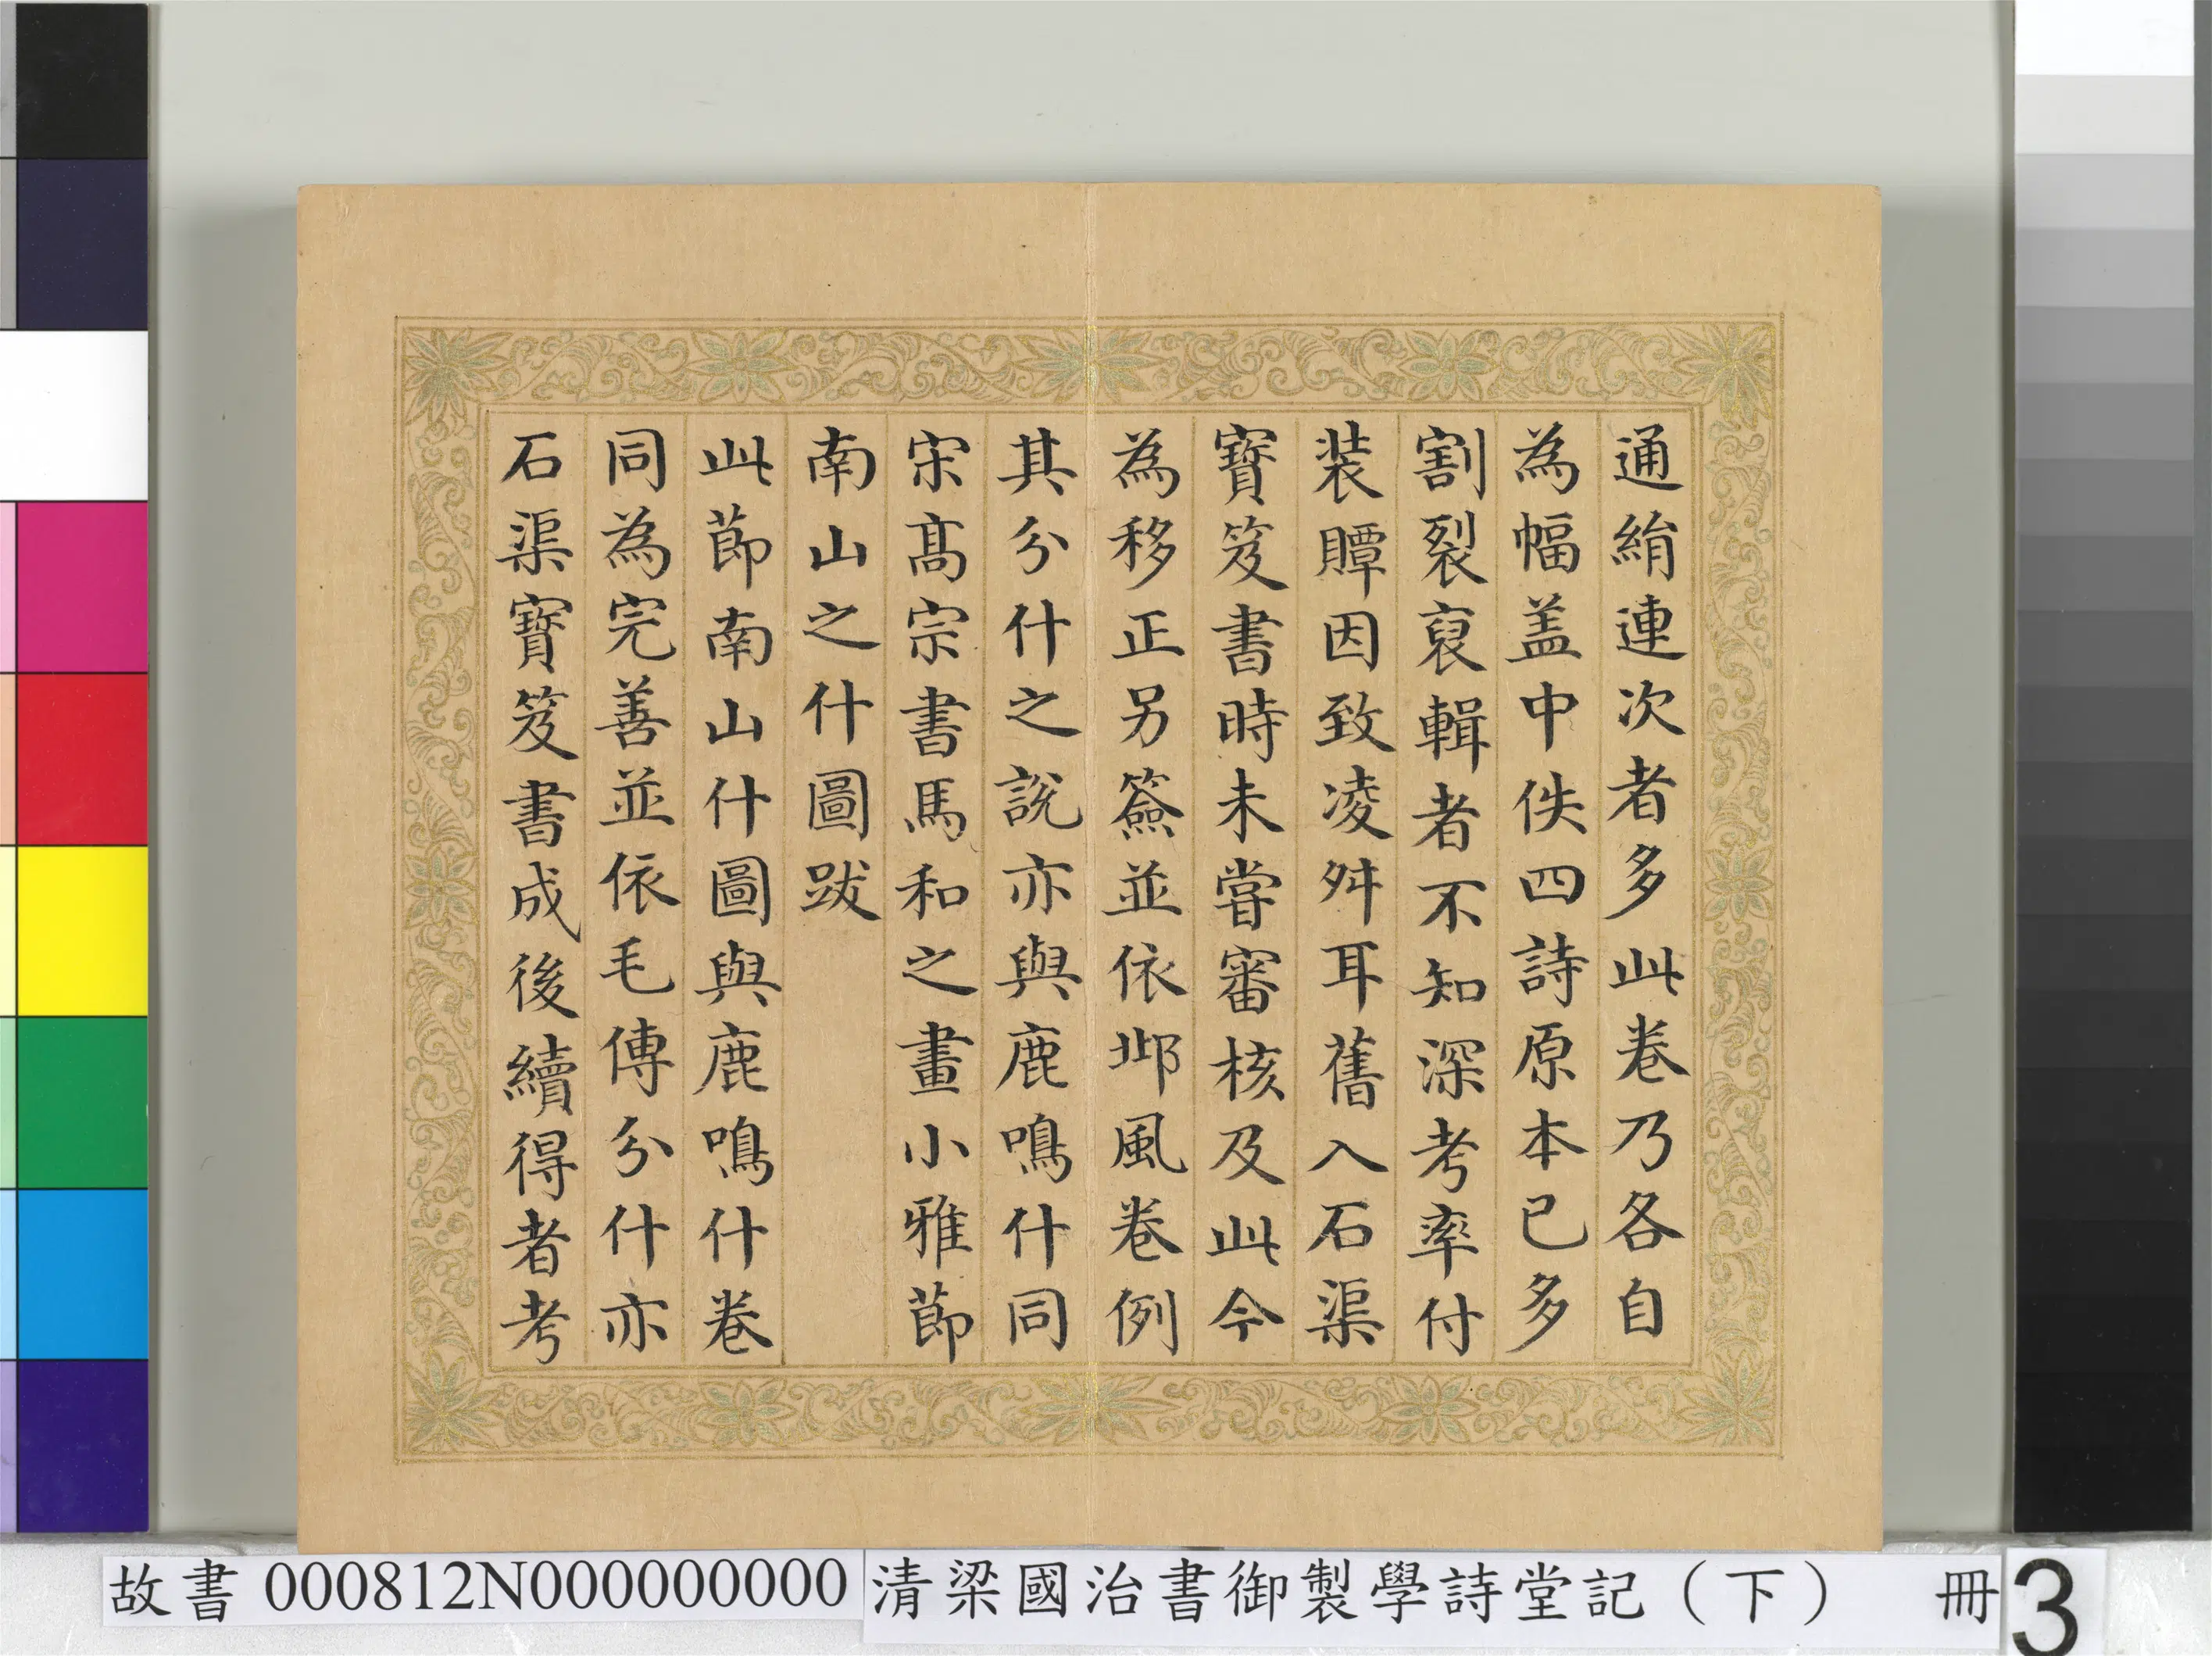 通絹連次者多此卷乃各自
為幅盖中佚四詩原本已多
割裂裒輯者不知深考率付
装贉因致凌舛耳舊入石渠
寶笈書時未嘗審核及此今
為移正另簽並依邶風卷例
其分什之説亦與鹿鳴什同
宋髙宗書馬和之畫小雅節
南山之什圖跋
此節南山什圖與鹿鳴什卷
同為完善並依毛傳分什亦
石渠寶笈書成後續得者考
故書 000812N000000000
清梁國治書御製學詩堂記（下） 冊
3